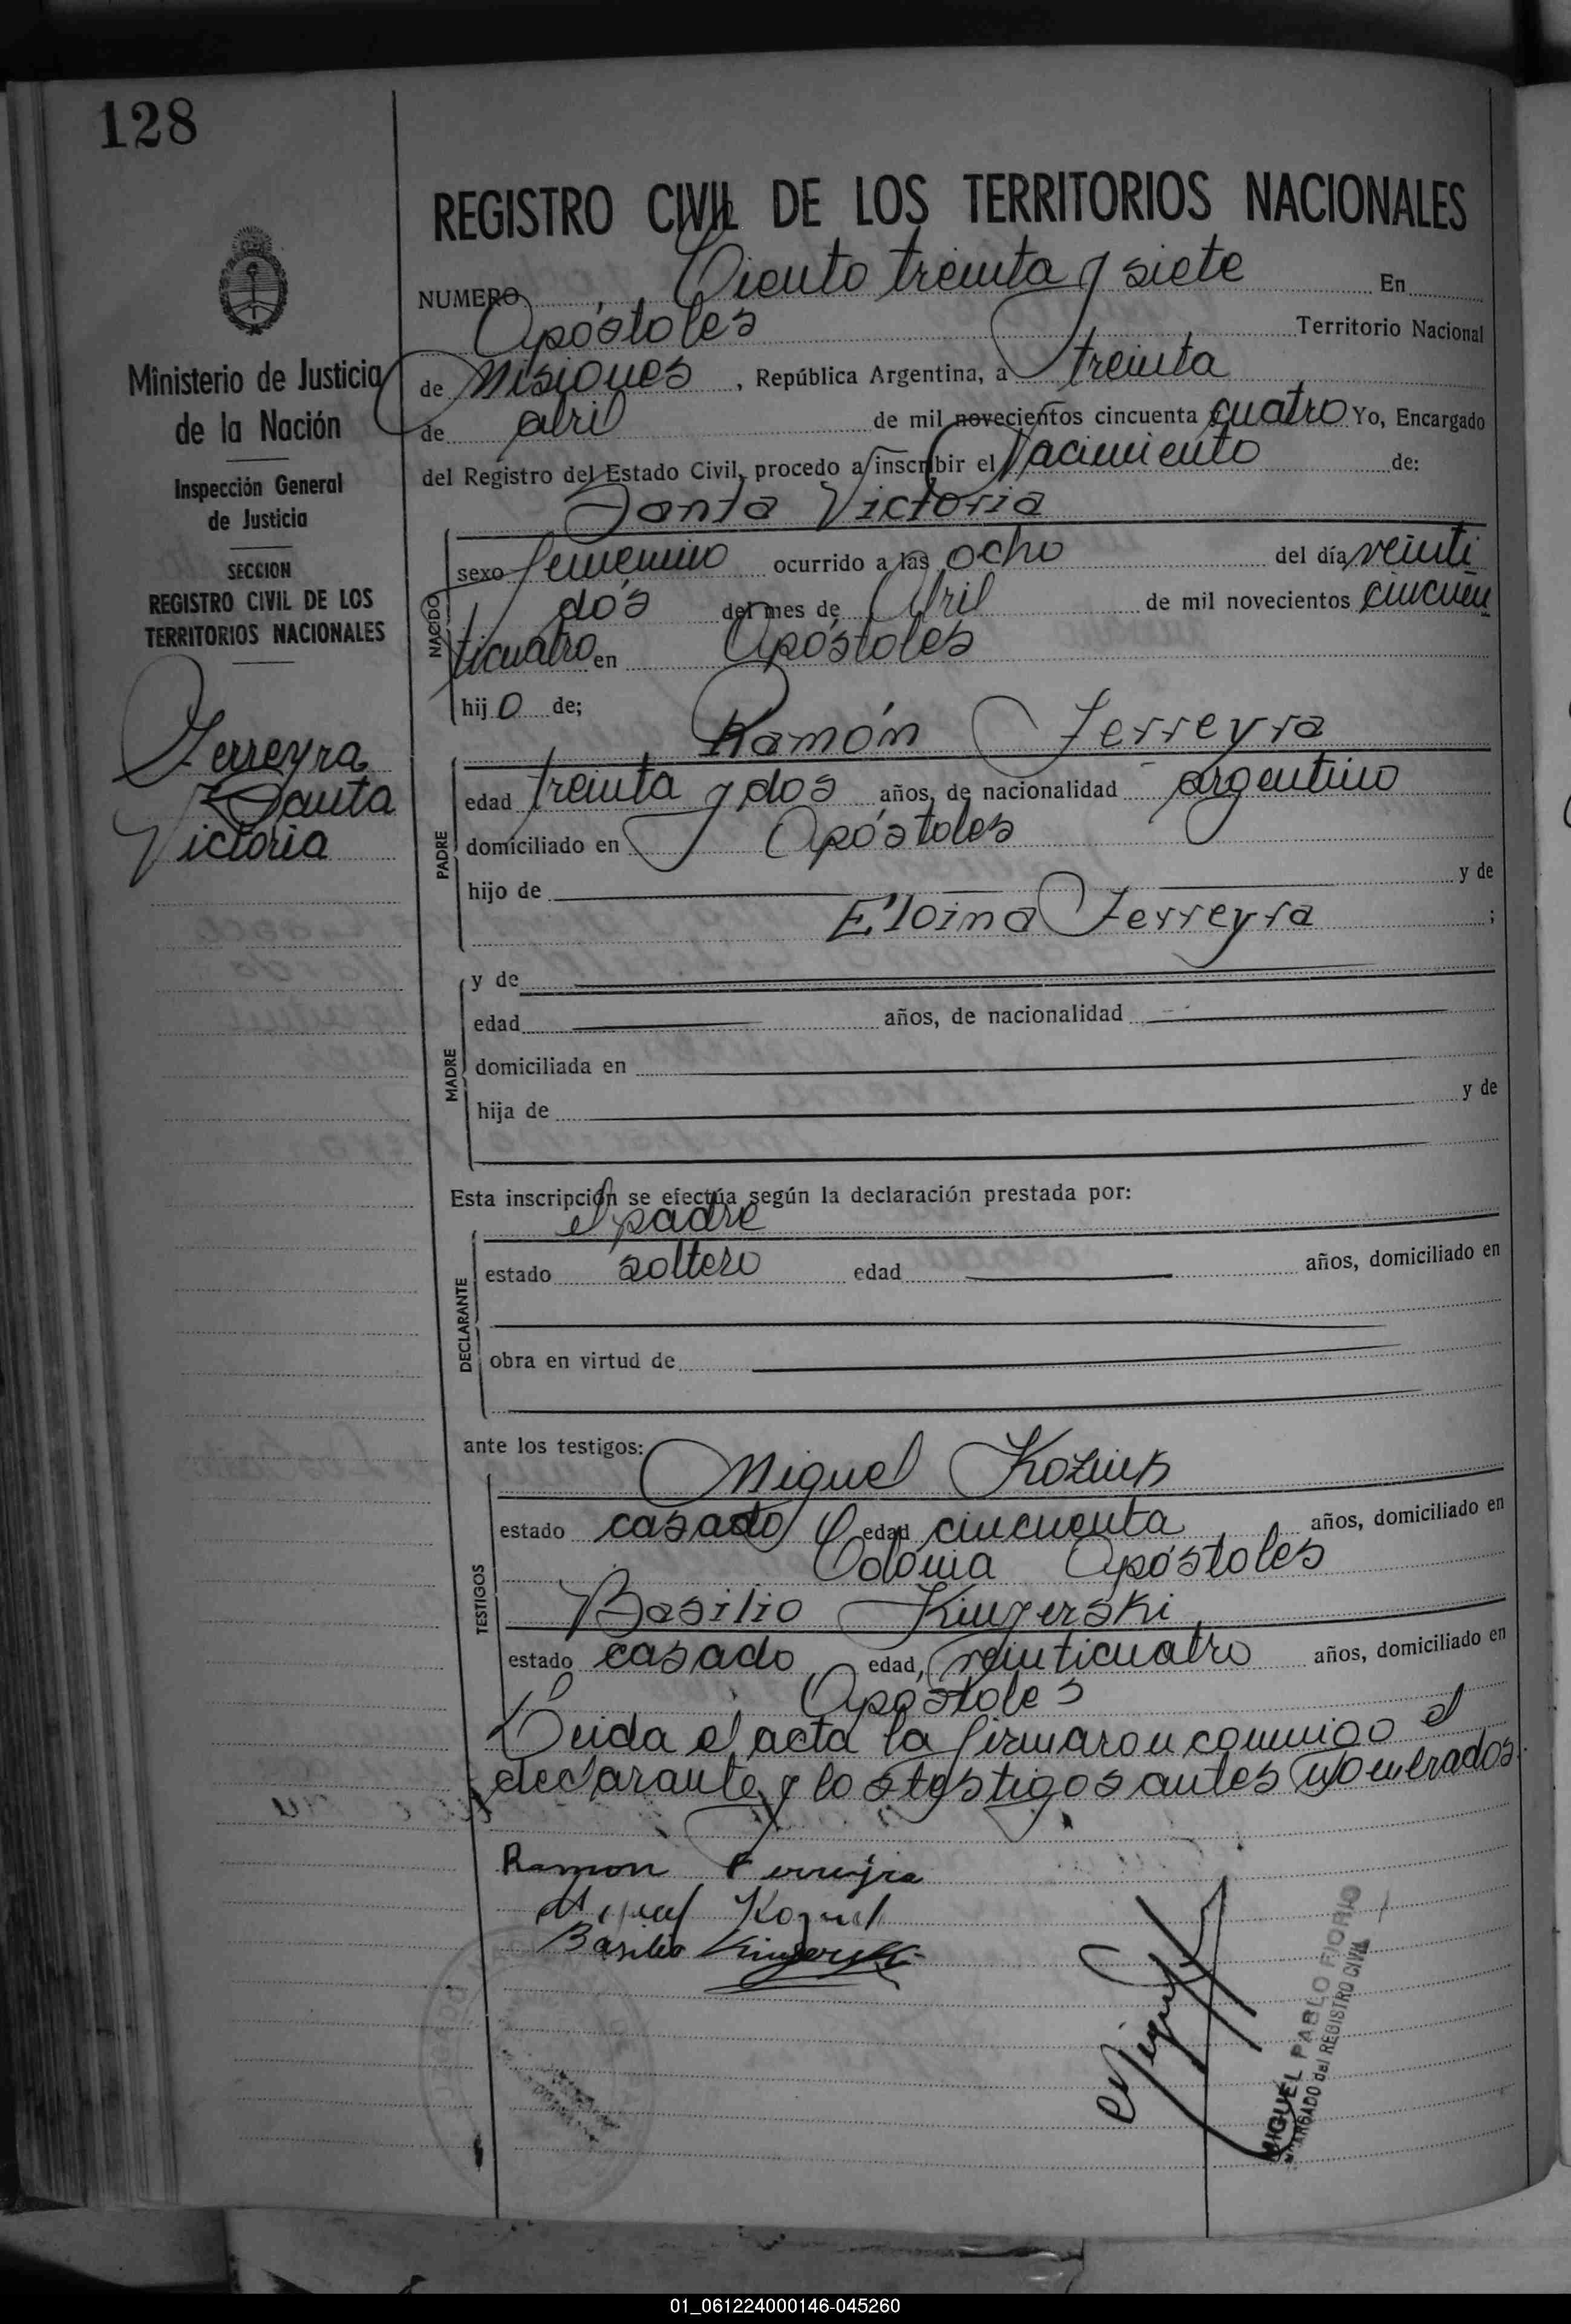 128
REGISTRO CIVIL DE LOS TERRITORIOS NACIONALES
NUMERO Ciento treinta y siete En
Apóstoles Territorio Nacional
de Misiones, República Argentina, a treinta
de abril de mil novecientos cincuenta cuatro Yo, Encargado
del Registro del Estado Civil, procedo a inscribir el Nacimiento de:
Santa Victoria
sexo femenino ocurrido a las ocho del día veinti
dós del mes de Abril de mil novecientos cincuen
ticuatro en Apóstoles
NACIDO
hijo de;
Ramón Ferreyra
edad treinta y dos años, de nacionalidad argentino
domiciliado en Apóstoles
PADRE
hijo de y de
Eloina Ferreyra ;
y de
edad años, de nacionalidad
domiciliada en
MADRE
hija de y de
Esta inscripción se efectúa según la declaración prestada por:
el padre
estado soltero edad años, domiciliado en
DECLARANTE
obra en virtud de
ante los testigos: Miguel
estado casado edad cincuenta años, domiciliado en
Colonia Apóstoles
TESTIGOS
Basilio Kinzerski
estado casado edad, veinticuatro años, domiciliado en
Apóstoles
Leida el acta la firmaron conmigo el
declarante y los testigos antes nombrados.
Ramon Ferreyra
Basilio Kinzerski
MIGUEL PABLO FIORIO
ENCARGADO del REGISTRO CIVIL
Ministerio de Justicia
de la Nación
Inspección General
de Justicia
SECCION
REGISTRO CIVIL DE LOS
TERRITORIOS NACIONALES
Ferreyra
Santa
Victoria
01_061224000146-045260